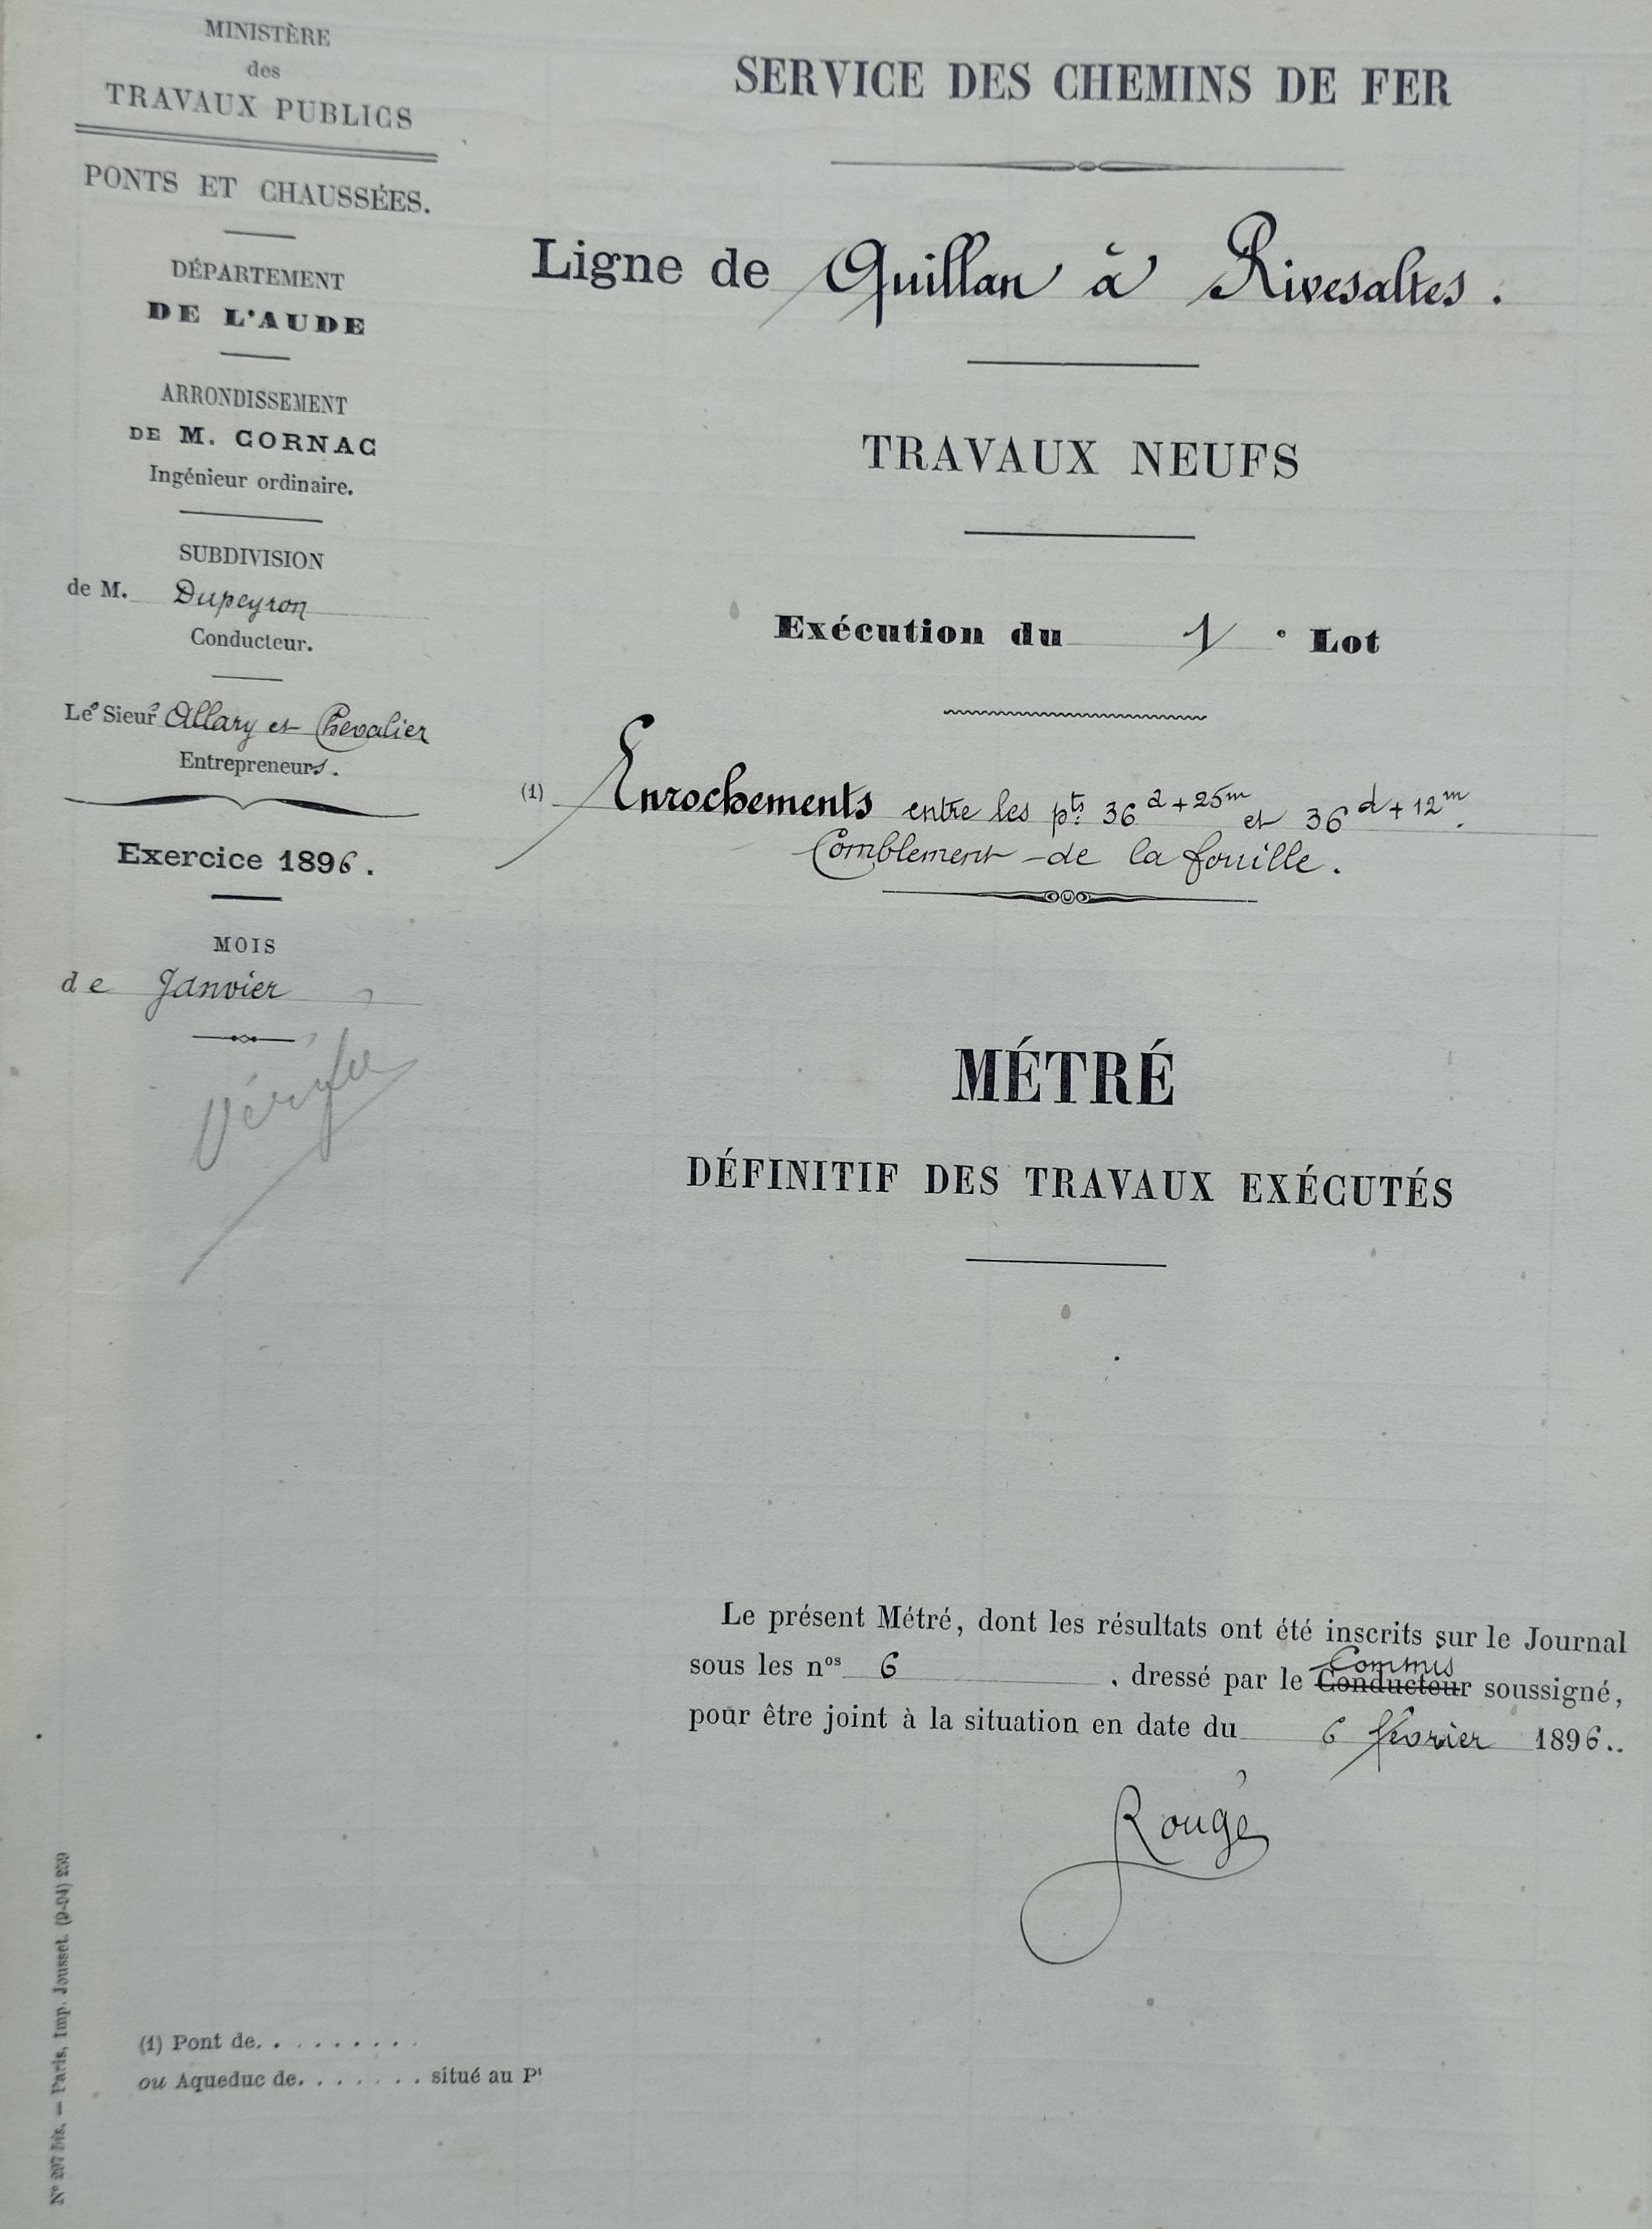 MINISTÈRE
des
TRAVAUX PUBLICS
PONTS ET CHAUSSÉES.
DÉPARTEMENT
DE L'AUDE
ARRONDISSEMENT
DE M. CORNAC
Ingénieur ordinaire.
SUBDIVISION
de M. Dupeyron
Conducteur.
Les Sieurs Allary et Chevalier
Entrepreneurs.
Exercice 1896.
MOIS
de Janvier
Vérifié
SERVICE DES CHEMINS DE FER
Ligne de Quillan à Rivesaltes.
TRAVAUX NEUFS
Exécution du 1 e Lot
(1) Enrochements entre les pts 36 a + 25m et 36 d + 12m.
Comblement de la fouille.
MÉTRÉ
DÉFINITIF DES TRAVAUX EXÉCUTÉS
Le présent Métré, dont les résultats ont été inscrits sur le Journal
sous les nos 6, dressé par le Conducteur Commis soussigné,
pour être joint à la situation en date du 6 février 1896..
Rougé
(1) Pont de. . . . . . . . .
ou Aqueduc de. . . . . . . situé au Pt
N° 297 bis. — Paris, Imp. Jousset. (9-94) 259